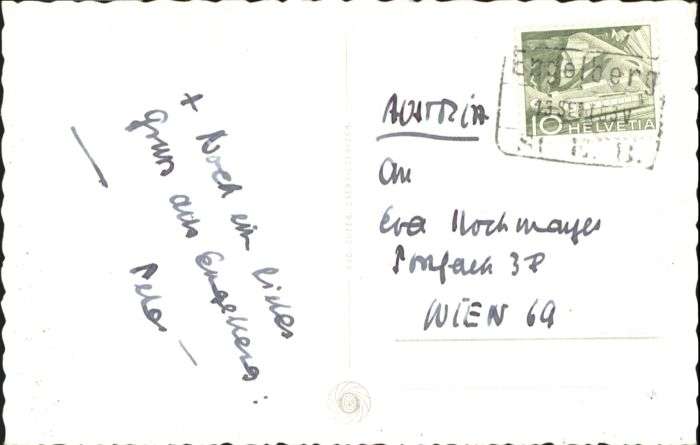 + Noch ein liebes
Gruss aus Engelberg:
Peter –
AUSTRIA
An
Eva
Postfach
WIEN
Engelberg
10 HELVETIA